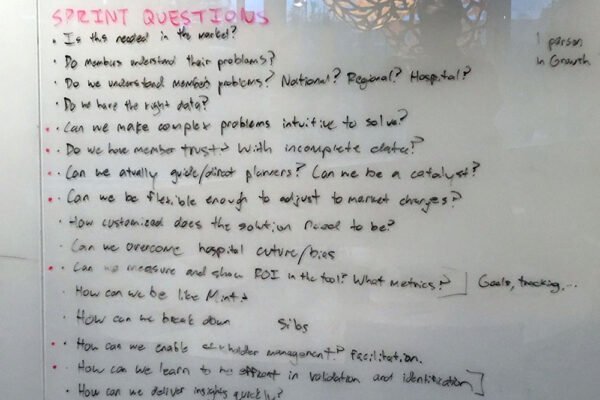 SPRINT QUESTIONS
• Is this needed in the market?
• Do members understand their problems?
• Do we understand members problems? National? Regional? Hospital?
• Do we have the right data?
• Can we make complex problems intuitive to solve?
• Do we have member trust? With incomplete data?
• Can we atually guide/direct planners? Can we be a catalyst?
• Can we be flexible enough to adjust to market changes?
• How customized does the solution need to be?
• Can we overcome hospital cuture/bias
• Can we measure and show ROI in the tool? What metrics? ] Goals, tracking...
• How can we be like Mint?
• How can we break down silos
• How can we enable management? Facilitation.
• How can we learn to be in validation and identification ]
• How can we deliver insights quickly?
1 person
in Growth